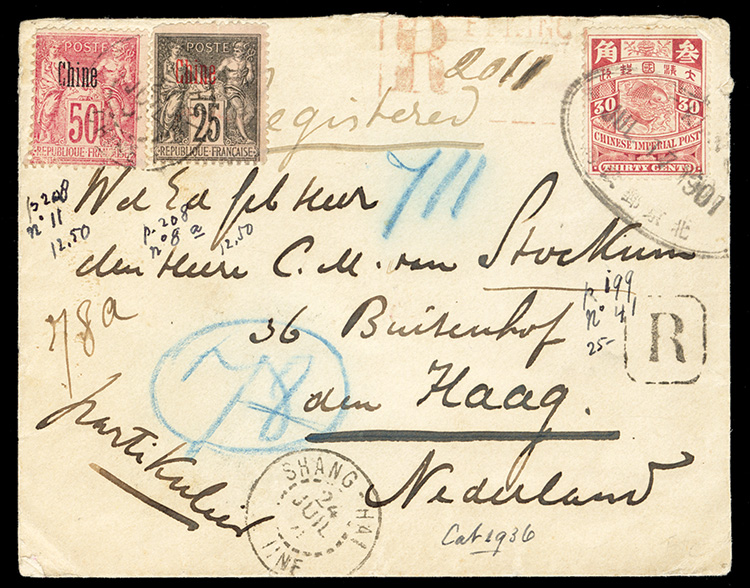 POSTE
Chine
50
RÉPUBLIQUE FRANÇAISE
POSTE
Chine
25
RÉPUBLIQUE FRANÇAISE
R
2011
Registered
角 叁
大清國郵政
30 30
CHINESE IMPERIAL POST
THIRTY CENTS
1901
北京
711
p. 208
no 11
12.50
p. 208
no 8 a
12.50
Wel Ed Geb Heer
den Heere C. M. van Stockum
36 Buitenhof
den Haag.
Nederland
p. 199
no 41
25-
R
78a
78
partikulier
SHANG-HAI
24
JUIL
CHINE
Cat 1936